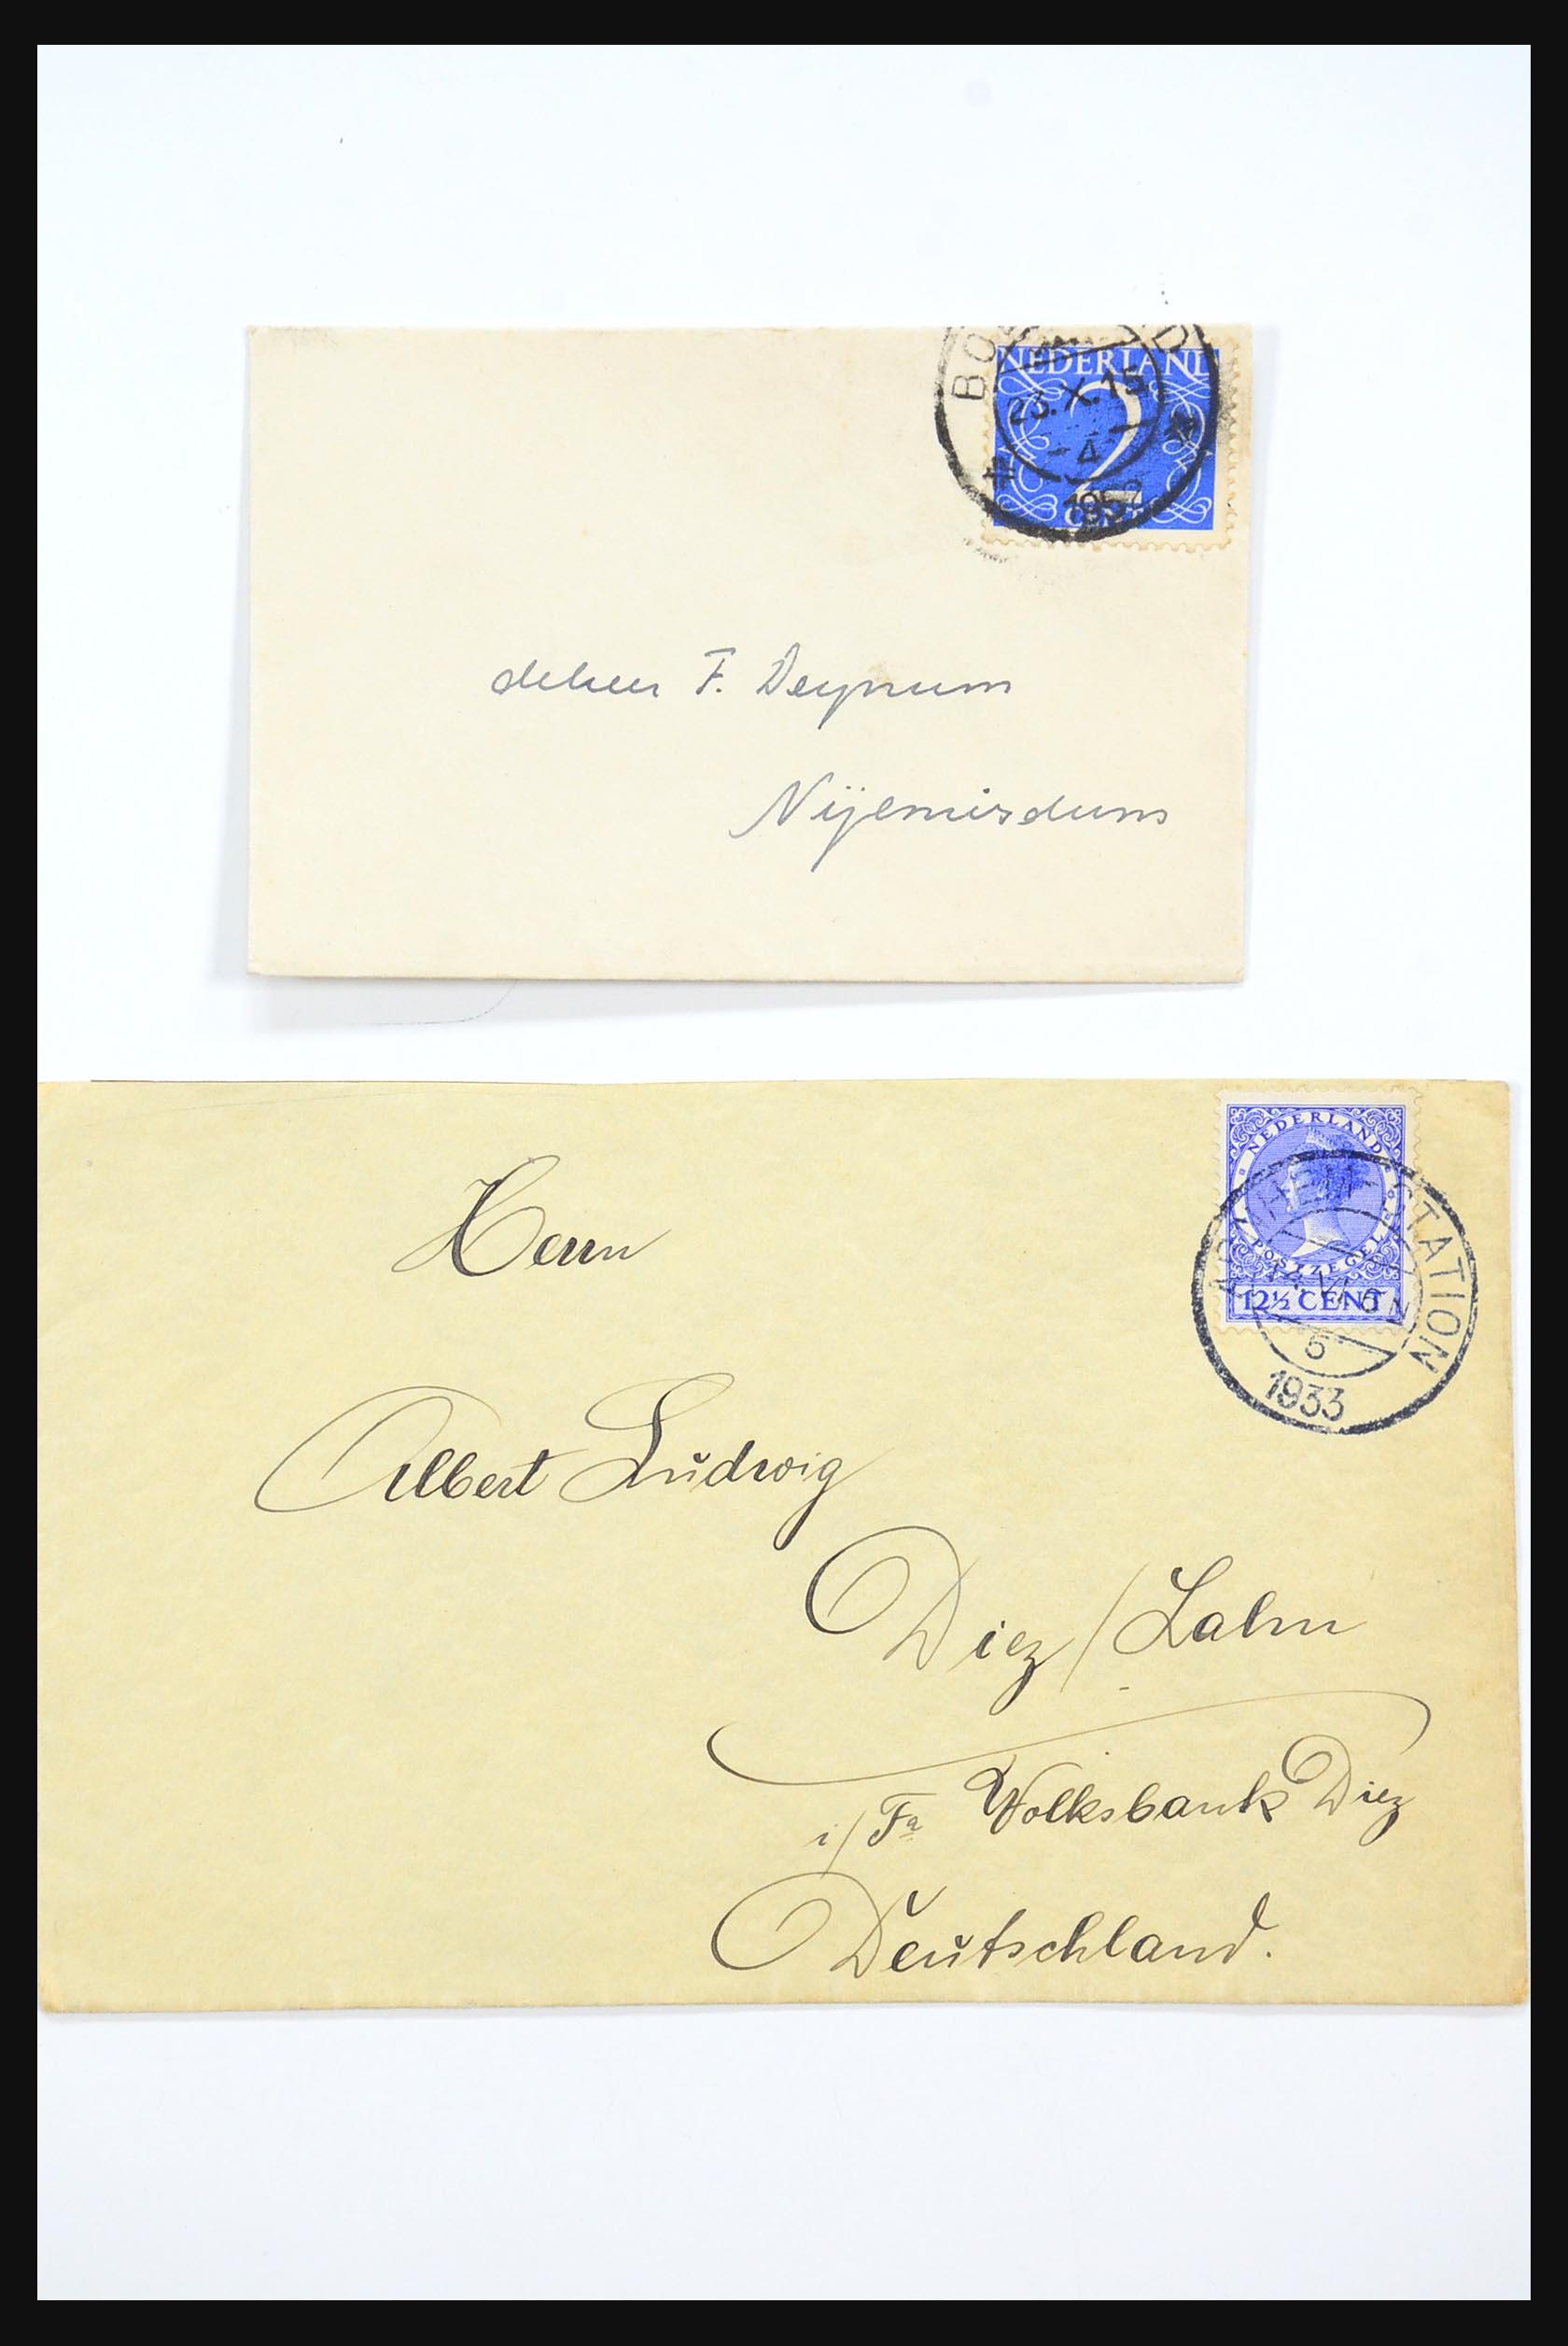 NEDERLAND
2
CENT
23.X.15
4
1952
deheer F. Deynum
Nijemirdum
NEDERLAND
POSTZEGEL
12½ CENT
STATION
5
1933
Herrn
Albert Ludwig
Diez/Lahn
i/Fa Volksbank Diez
Deutschland.